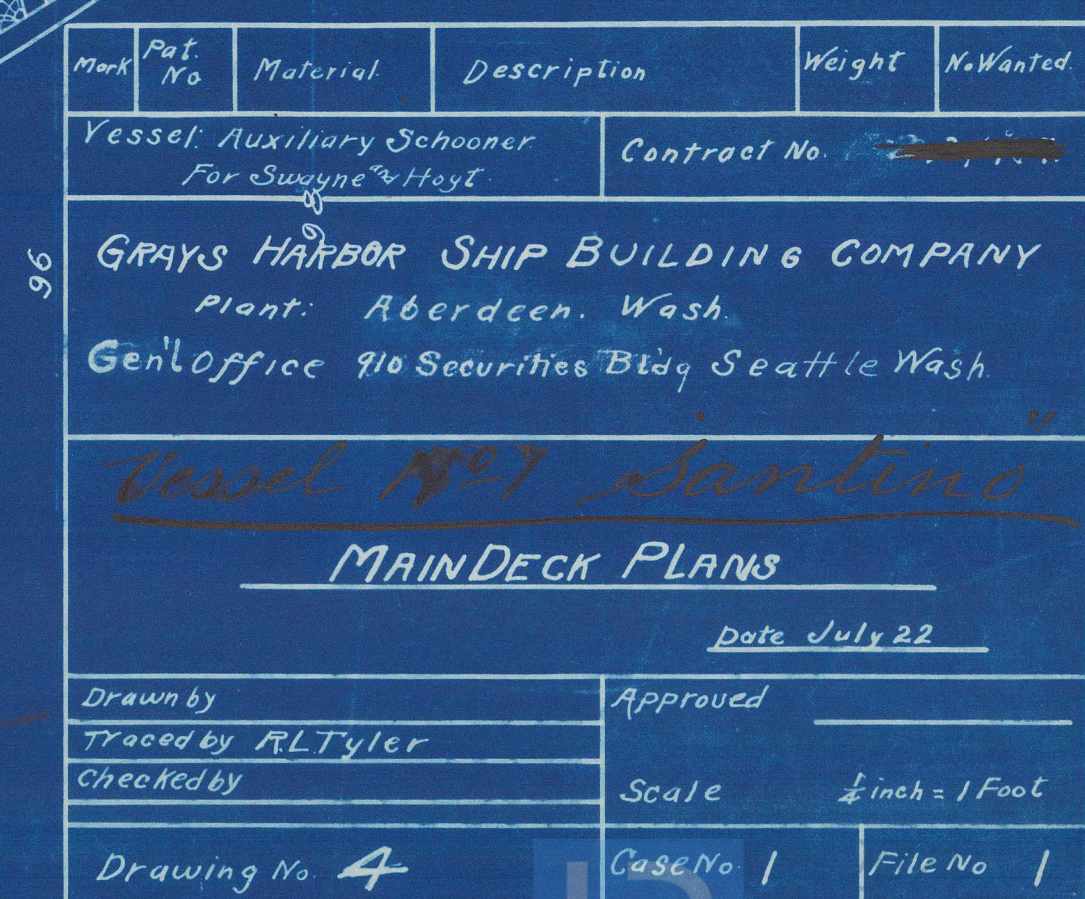 Mark Pat. No Material Description Weight No Wanted
Vessel: Auxiliary Schooner
For Swayne and Hoyt.
Contract No.
96
98
GRAYS HARBOR SHIP BUILDING COMPANY
Plant: Aberdeen. Wash.
Gen'l Office 910 Securities Bldg Seattle Wash.
Vessel No 7 "Santino"
MAIN DECK PLANS
Date July 22
Drawn by
Approved
Traced by R.L. Tyler
Checked by
Scale 1/4 inch = 1 Foot
Drawing No. 4
Case No. 1
File No 1